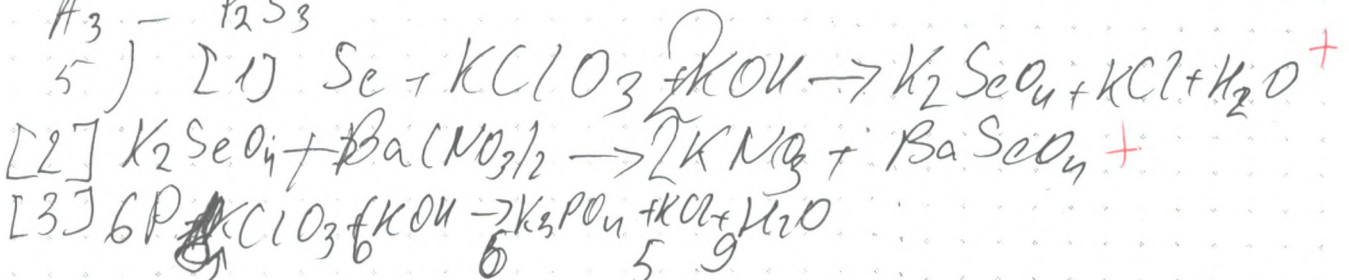 A3 – P2S3
5) [1] Se + KClO3 + 2KOH → K2SeO4 + KCl + H2O +
[2] K2SeO4 + Ba(NO3)2 → 2KNO3 + BaSeO4 +
[3] 6P KClO3 + 6KOH → 6K3PO4 + 5KCl + 9H2O